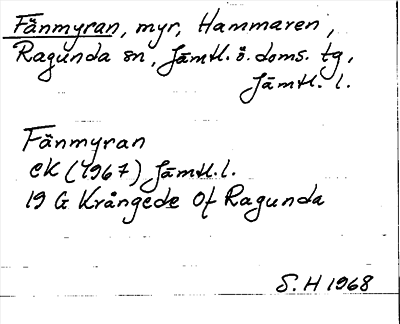 Fänmyran, myr, Hammaren,
Ragunda sn, Jämtl. ö. doms. tg,
Jämtl. l.
Fänmyran
ek (1967) Jämtl. l.
19 G Krångede Of Ragunda
S. H 1968